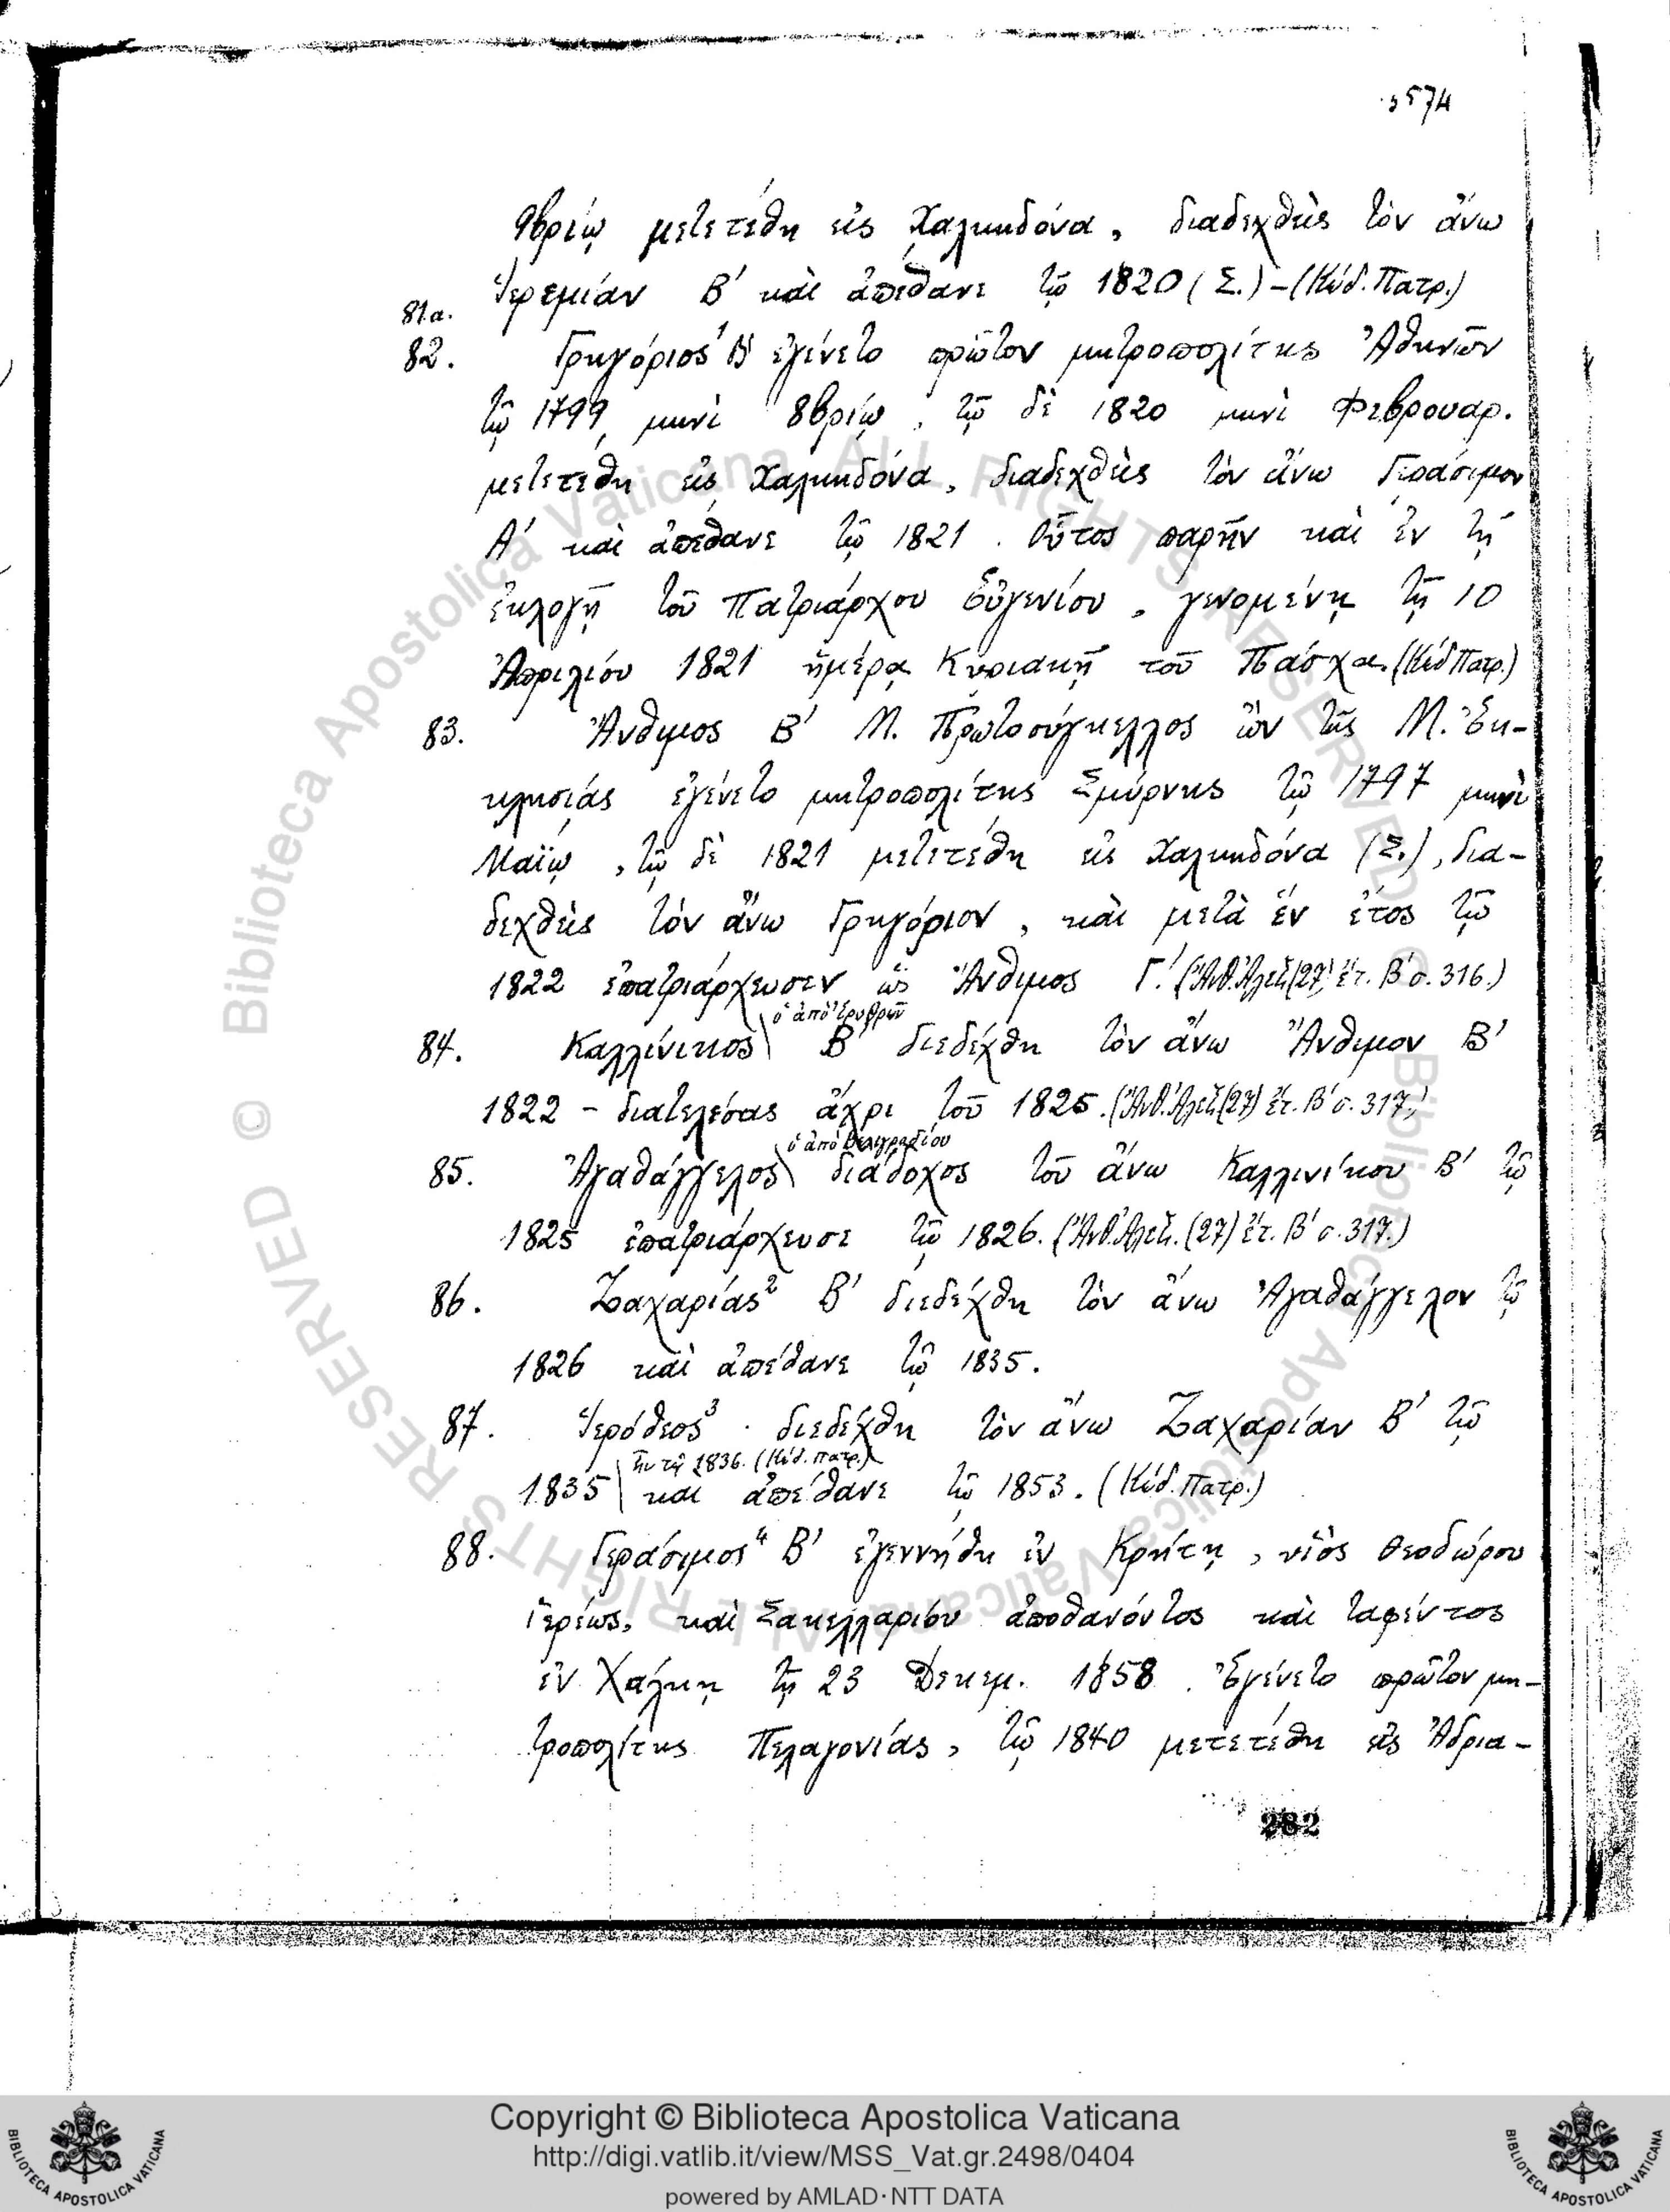 574
9βρίῳ μετετέθη εἰς Χαλκηδόνα, διαδεχθεὶς τὸν ἄνω
Ἱερεμίαν Β' καὶ ἀπέθανε τῷ 1820 (Σ.) – (Κώδ. Πατρ.)
81α.
82. Γρηγόριος¹ Β' ἐγένετο πρῶτον μητροπολίτης Ἀθηνῶν
τῷ 1799, μηνὶ 8βρίῳ, τῷ δὲ 1820 μηνὶ Φεβρουαρ.
μετετέθη εἰς Χαλκηδόνα, διαδεχθεὶς τὸν ἄνω Γεράσιμον
Α' καὶ ἀπέθανε τῷ 1821. Οὗτος παρῆν καὶ ἐν τῇ
ἐκλογῇ τοῦ Πατριάρχου Εὐγενίου, γενομένῃ τῇ 10
Ἀπριλίου 1821 ἡμέρᾳ Κυριακῇ τοῦ Πάσχα. (Κώδ Πατρ.)
83. Ἄνθιμος Β' Μ. Πρωτοσύγκελλος ὢν τῆς Μ. Ἐκ-
κλησιάς ἐγένετο μητροπολίτης Σμύρνης τῷ 1797 μηνὶ
Μαΐῳ, τῷ δὲ 1821 μετετέθη εἰς Χαλκηδόνα (Σ.), δια-
δεχθεὶς τὸν ἄνω Γρηγόριον, καὶ μετὰ ἓν ἔτος τῷ
1822 ἐπατριάρχευσεν ὡς Ἄνθιμος Γ'. (Ἀνθ. Ἀλεξ (27) ἔτ. Β' σ. 316.)
ὁ ἀπὸ Ἐρυθρῶν
84. Καλλίνικος Β' διεδέχθη τὸν ἄνω Ἄνθιμον Β'
1822 – διατελέσας ἄχρι τοῦ 1825. (Ἀνθ. Ἀλεξ. (27) ἔτ. Β' σ. 317.)
ὁ ἀπὸ Βελιγραδίου
85. Ἀγαθάγγελος διάδοχος τοῦ ἄνω Καλλινίκου Β' τῷ
1825 ἐπατριάρχευσε τῷ 1826. (Ἀνθ. Ἀλεξ. (27) ἔτ. Β' σ. 317.)
86. Ζαχαρίας² Β' διεδέχθη τὸν ἄνω Ἀγαθάγγελον τῷ
1826 καὶ ἀπέθανε τῷ 1835.
87. Ἱερόθεος³ διεδέχθη τὸν ἄνω Ζαχαρίαν Β' τῷ
ἦν τῷ 1836. (Κώδ. Πατρ.)
1835 καὶ ἀπέθανε τῷ 1853. (Κώδ. Πατρ.)
88. Γεράσιμος⁴ Β' ἐγεννήθη ἐν Κρήτῃ, υἱὸς Θεοδώρου
ἱερέως, καὶ Σακελλαρίου ἀποθανόντος καὶ ταφέντος
ἐν Χάλκῃ τῇ 23 Δεκεμ. 1858. Ἐγένετο πρῶτον μη-
τροπολίτης Πελαγονίας, τῷ 1840 μετετέθη εἰς Ἀδρια-
282
© Biblioteca Apostolica Vaticana ALL RIGHTS RESERVED
Copyright © Biblioteca Apostolica Vaticana
http://digi.vatlib.it/view/MSS_Vat.gr.2498/0404
powered by AMLAD·NTT DATA
BIBLIOTECA APOSTOLICA VATICANA
BIBLIOTECA APOSTOLICA VATICANA